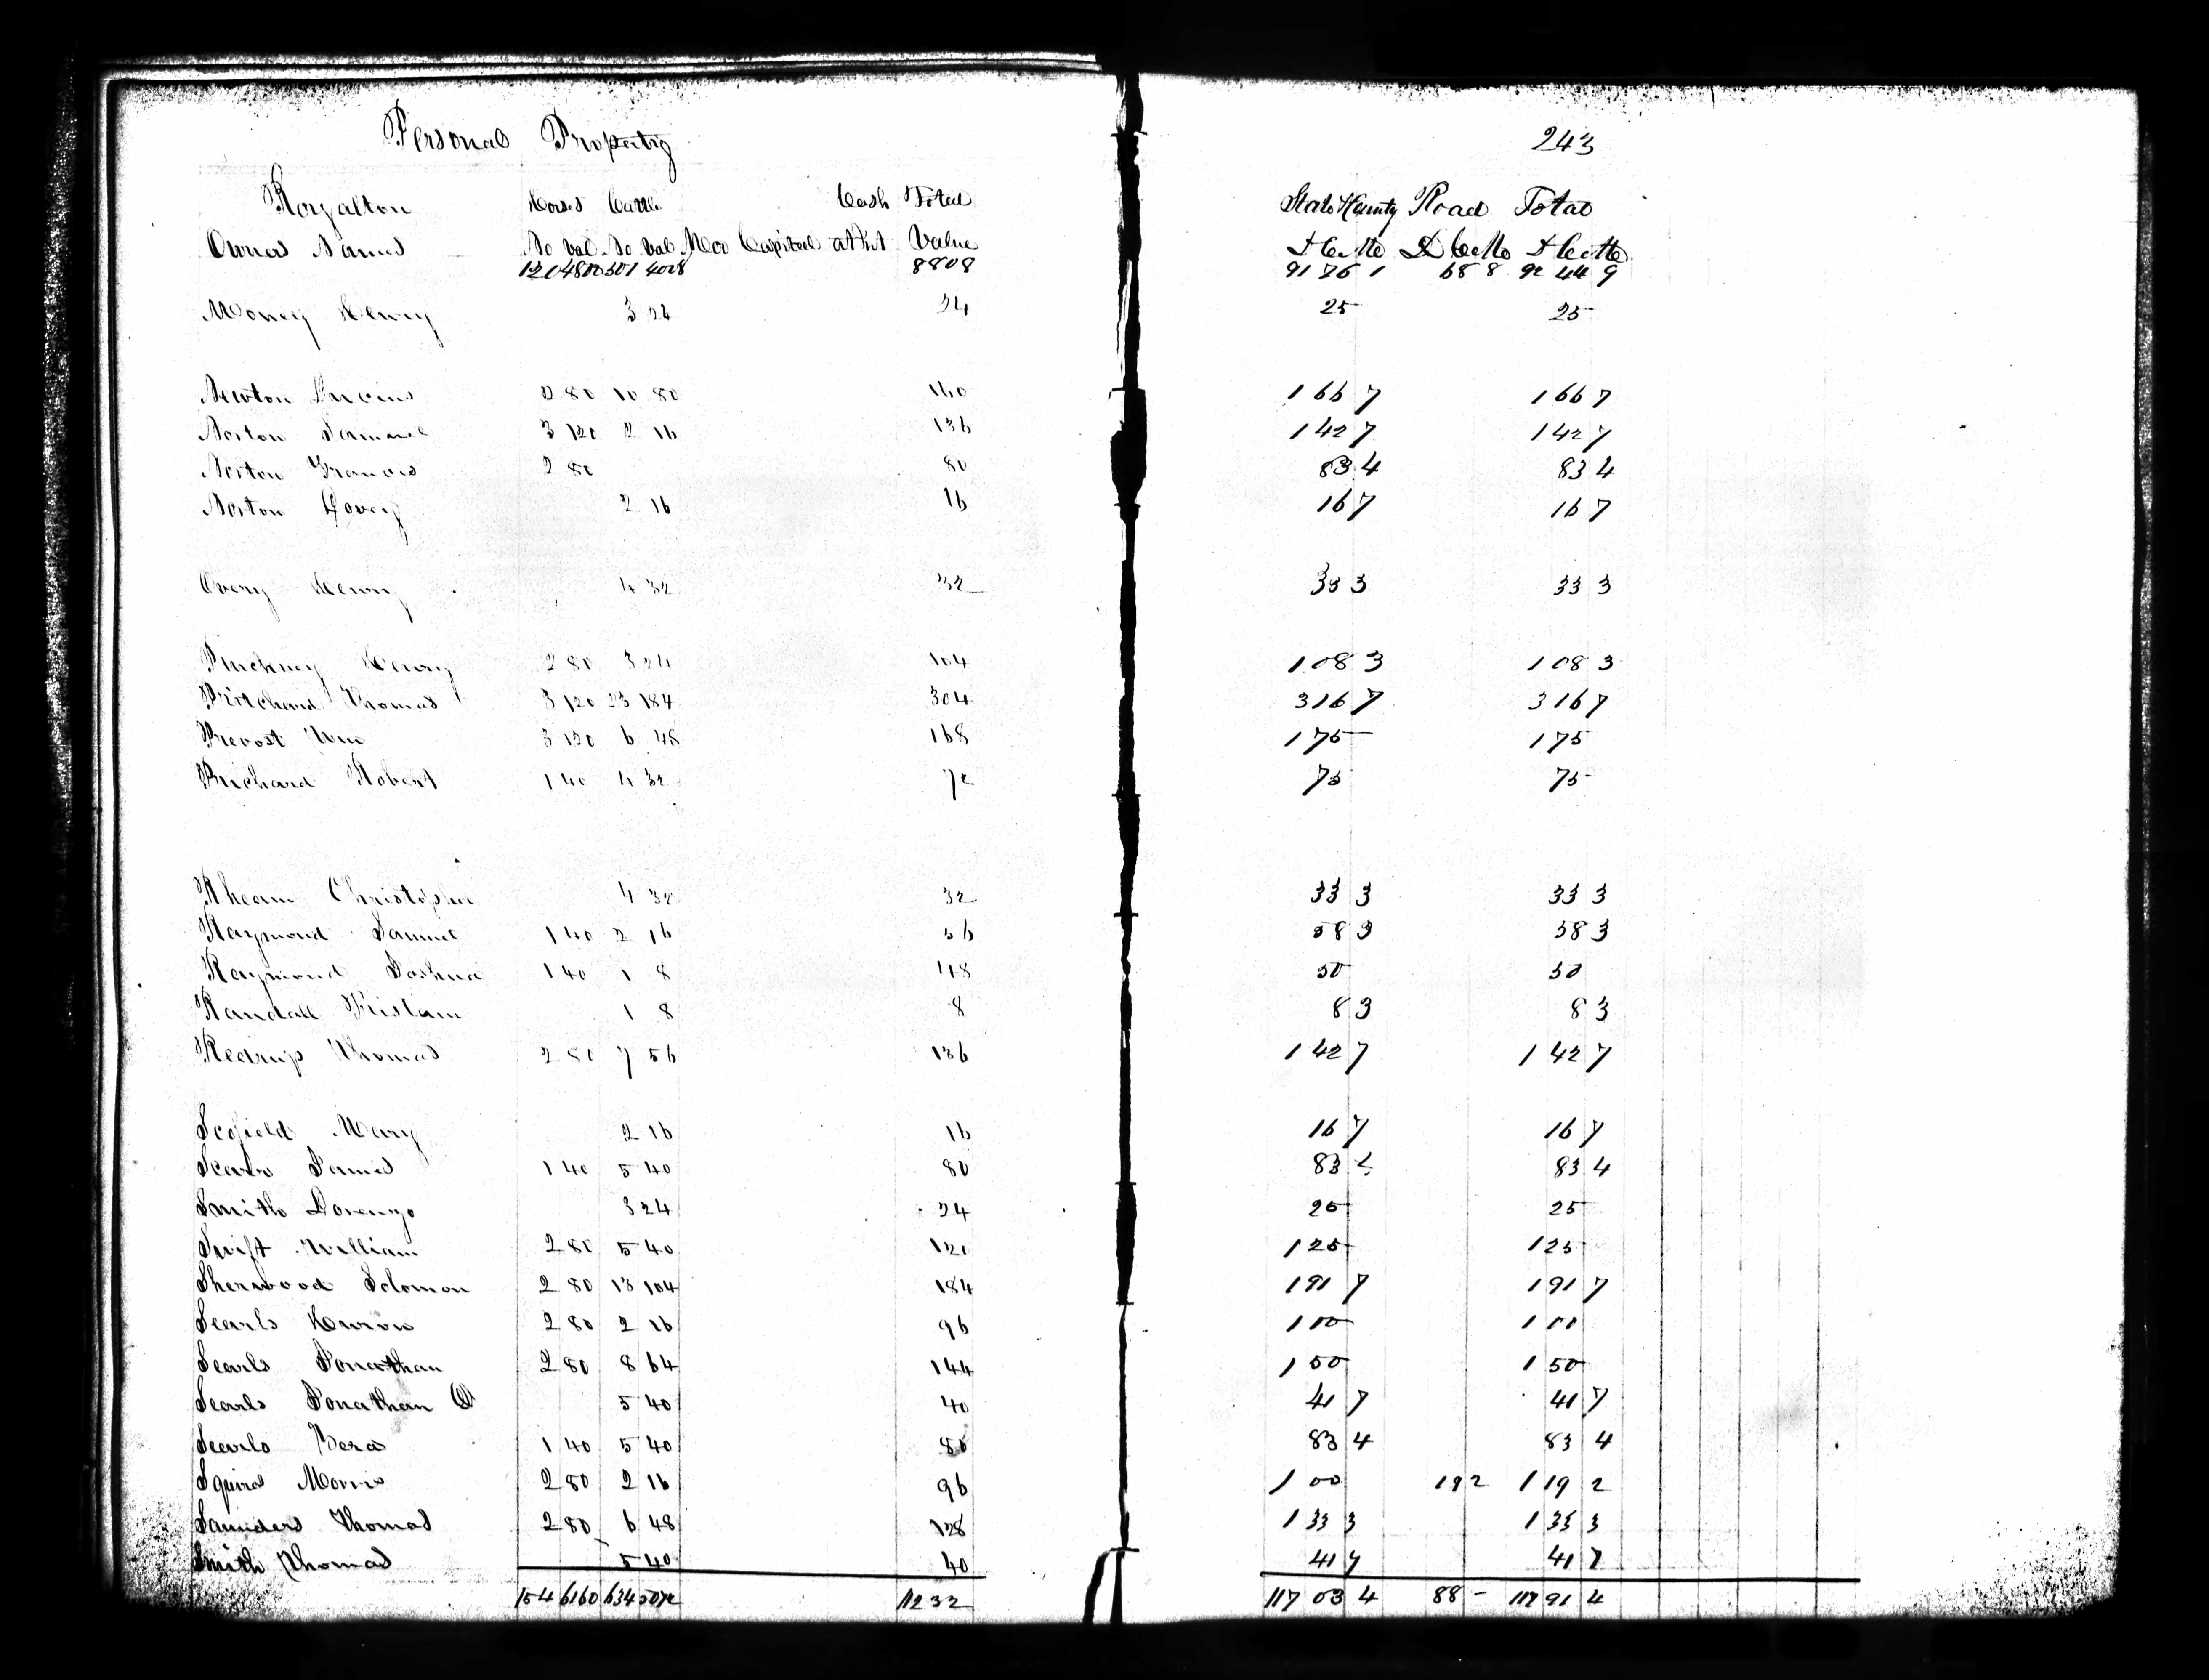 Personal Property 243
Royalton Horses Cattle Cash Total State & County Road Total
Owners Names No Val No Val Mer Capital at Int Value D C M D C M D C M
120 4800 501 4008 8808 91 76 1 68 8 92 44 9
Money Henry 3 24 24 25 25
Newton 2 80 10 80 160 1 66 7 1 66 7
Norton Samuel 3 120 2 16 136 1 42 7 1 42 7
Norton Francis 2 80 80 83 4 83 4
Norton 2 16 16 16 7 16 7
Overy Henry 4 32 32 33 3 33 3
Pinckney Henry 2 80 3 24 104 1 08 3 1 08 3
Pritchard Thomas 3 120 23 184 304 3 16 7 3 16 7
Prevost Wm 3 120 6 48 168 1 75 1 75
Prichard Robert 1 40 4 32 72 75 75
Rheam Christopher 4 32 32 33 3 33 3
Raymond Samuel 1 40 2 16 56 58 3 58 3
Raymond Joshua 1 40 1 8 48 50 50
Randall Tristam 1 8 8 8 3 8 3
Redrup Thomas 2 80 7 56 136 1 42 7 1 42 7
Scofield Mary 2 16 16 16 7 16 7
James 1 40 5 40 80 83 4 83 4
Smith Lorenzo 3 24 24 25 25
Swift William 2 80 5 40 120 1 25 1 25
Sherwood Solomon 2 80 13 104 184 1 91 7 1 91 7
Searls 2 80 2 16 96 1 00 1 00
Searls Jonathan 2 80 8 64 144 1 50 1 50
Searls Jonathan 5 40 40 41 7 41 7
Searls 1 40 5 40 80 83 4 83 4
Squires Morris 2 80 2 16 96 1 00 19 2 1 19 2
Saunders Thomas 2 80 6 48 128 1 33 3 1 33 3
Smith Thomas 5 40 40 41 7 41 7
154 6160 634 5072 11232 117 03 4 88 - 117 91 4